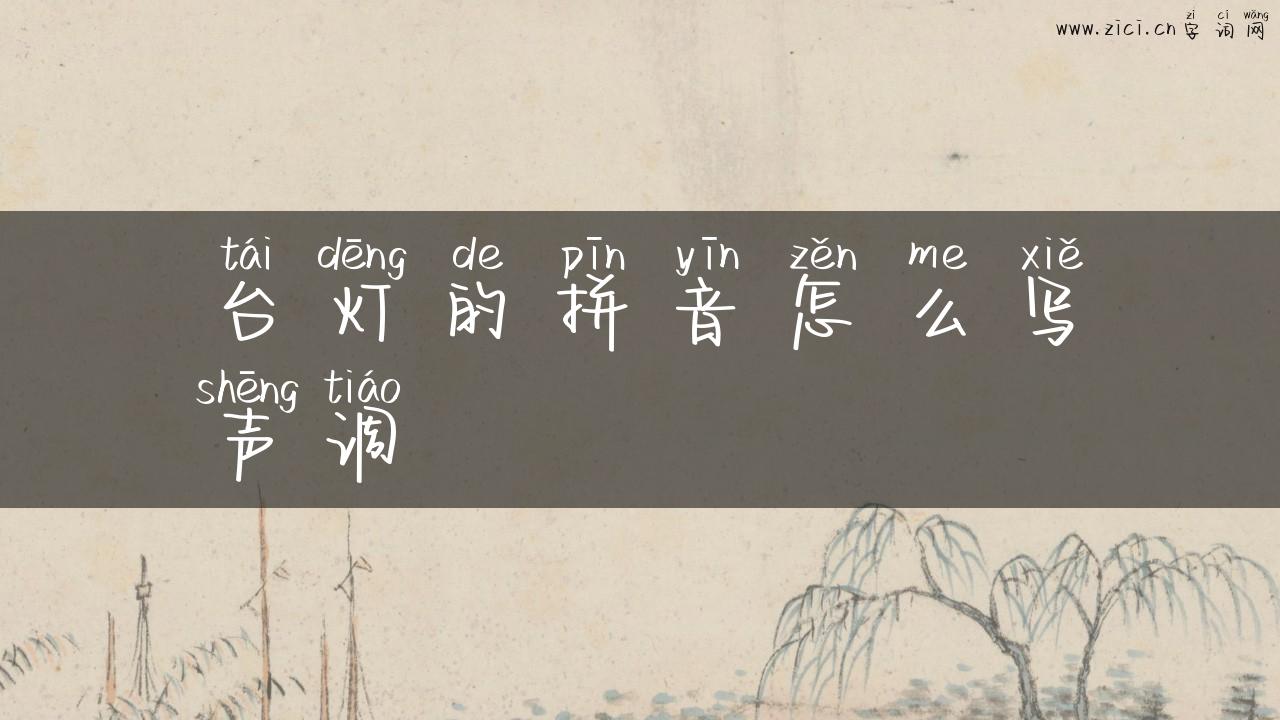 zì cí wǎng
www.zici.cn 字 词 网
tái dēng de pīn yīn zěn me xiě
台 灯 的 拼 音 怎 么 写
shēng tiáo
声 调